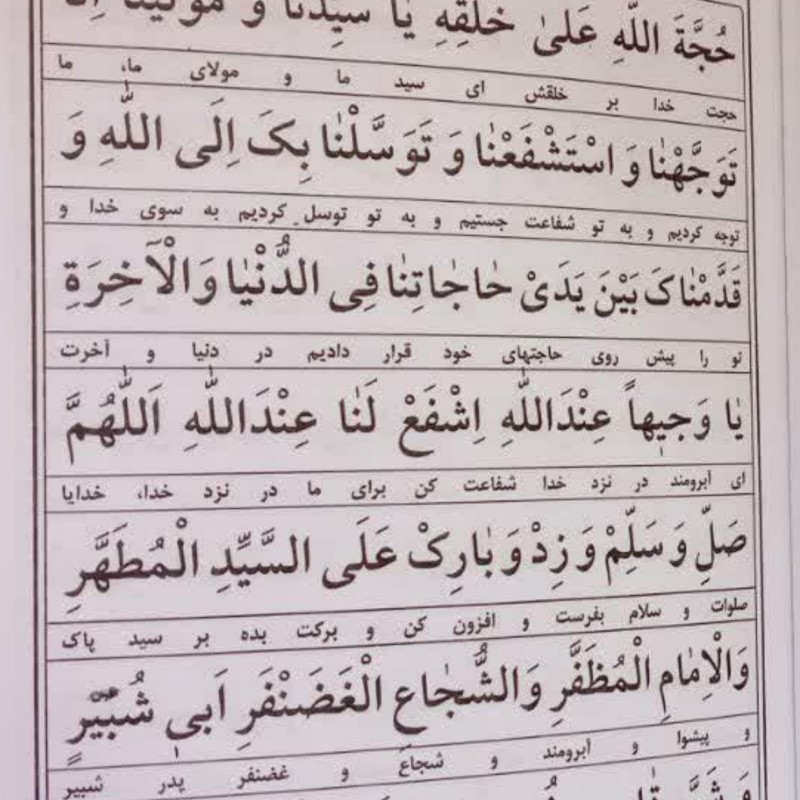 حُجَّةَ اللّٰهِ عَلىٰ خَلْقِهِ يٰا سَيِّدَنٰا وَ مَوْلٰينٰا اِنّٰا
حجت خدا بر خلقش ای سید ما و مولای ما، ما
تَوَجَّهْنٰا وَ اسْتَشْفَعْنٰا وَ تَوَسَّلْنٰا بِکَ اِلَى اللّٰهِ وَ
توجه کردیم و به تو شفاعت جستیم و به تو توسل کردیم به سوی خدا و
قَدَّمْنٰاکَ بَيْنَ يَدَىْ حٰاجٰاتِنٰا فِى الدُّنْيٰا وَالْآخِرَةِ
تو را پیش روی حاجتهای خود قرار دادیم در دنیا و آخرت
يٰا وَجيهاً عِنْدَاللّٰهِ اِشْفَعْ لَنٰا عِنْدَاللّٰهِ اَللّٰهُمَّ
ای آبرومند در نزد خدا شفاعت کن برای ما در نزد خدا، خدایا
صَلِّ وَ سَلِّمْ وَ زِدْ وَ بٰارِکْ عَلَى السَّيِّدِ الْمُطَهَّرِ
صلوات و سلام بفرست و افزون کن و برکت بده بر سید پاک
وَالْاِمٰامِ الْمُظَفَّرِ وَالشُّجٰاعِ الْغَضَنْفَرِ اَبى شُبَيْرٍ
و پیشوا و آبرومند و شجاع و غضنفر پدر شبیر